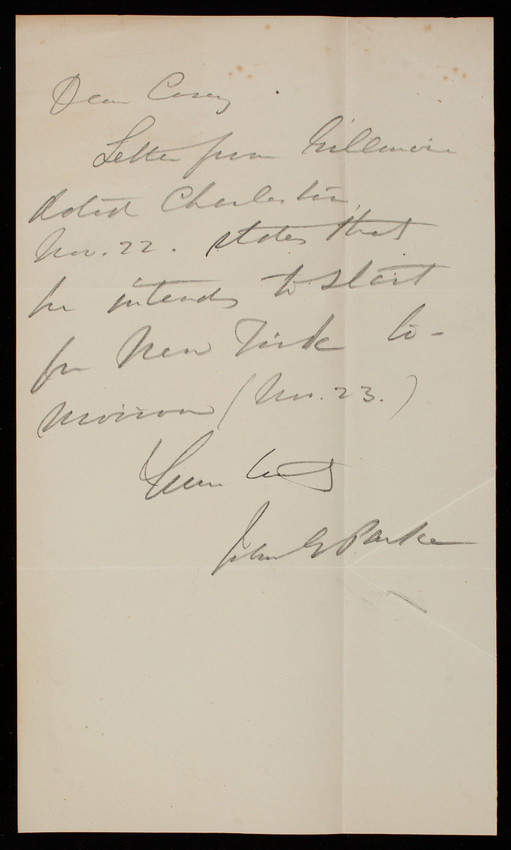 Dear Casey
Letter from Gillmore
dated Charleston,
Nov. 22. states that
he intends to start
for New York to-
morrow (Nov. 23.)
Yours
John G Parke